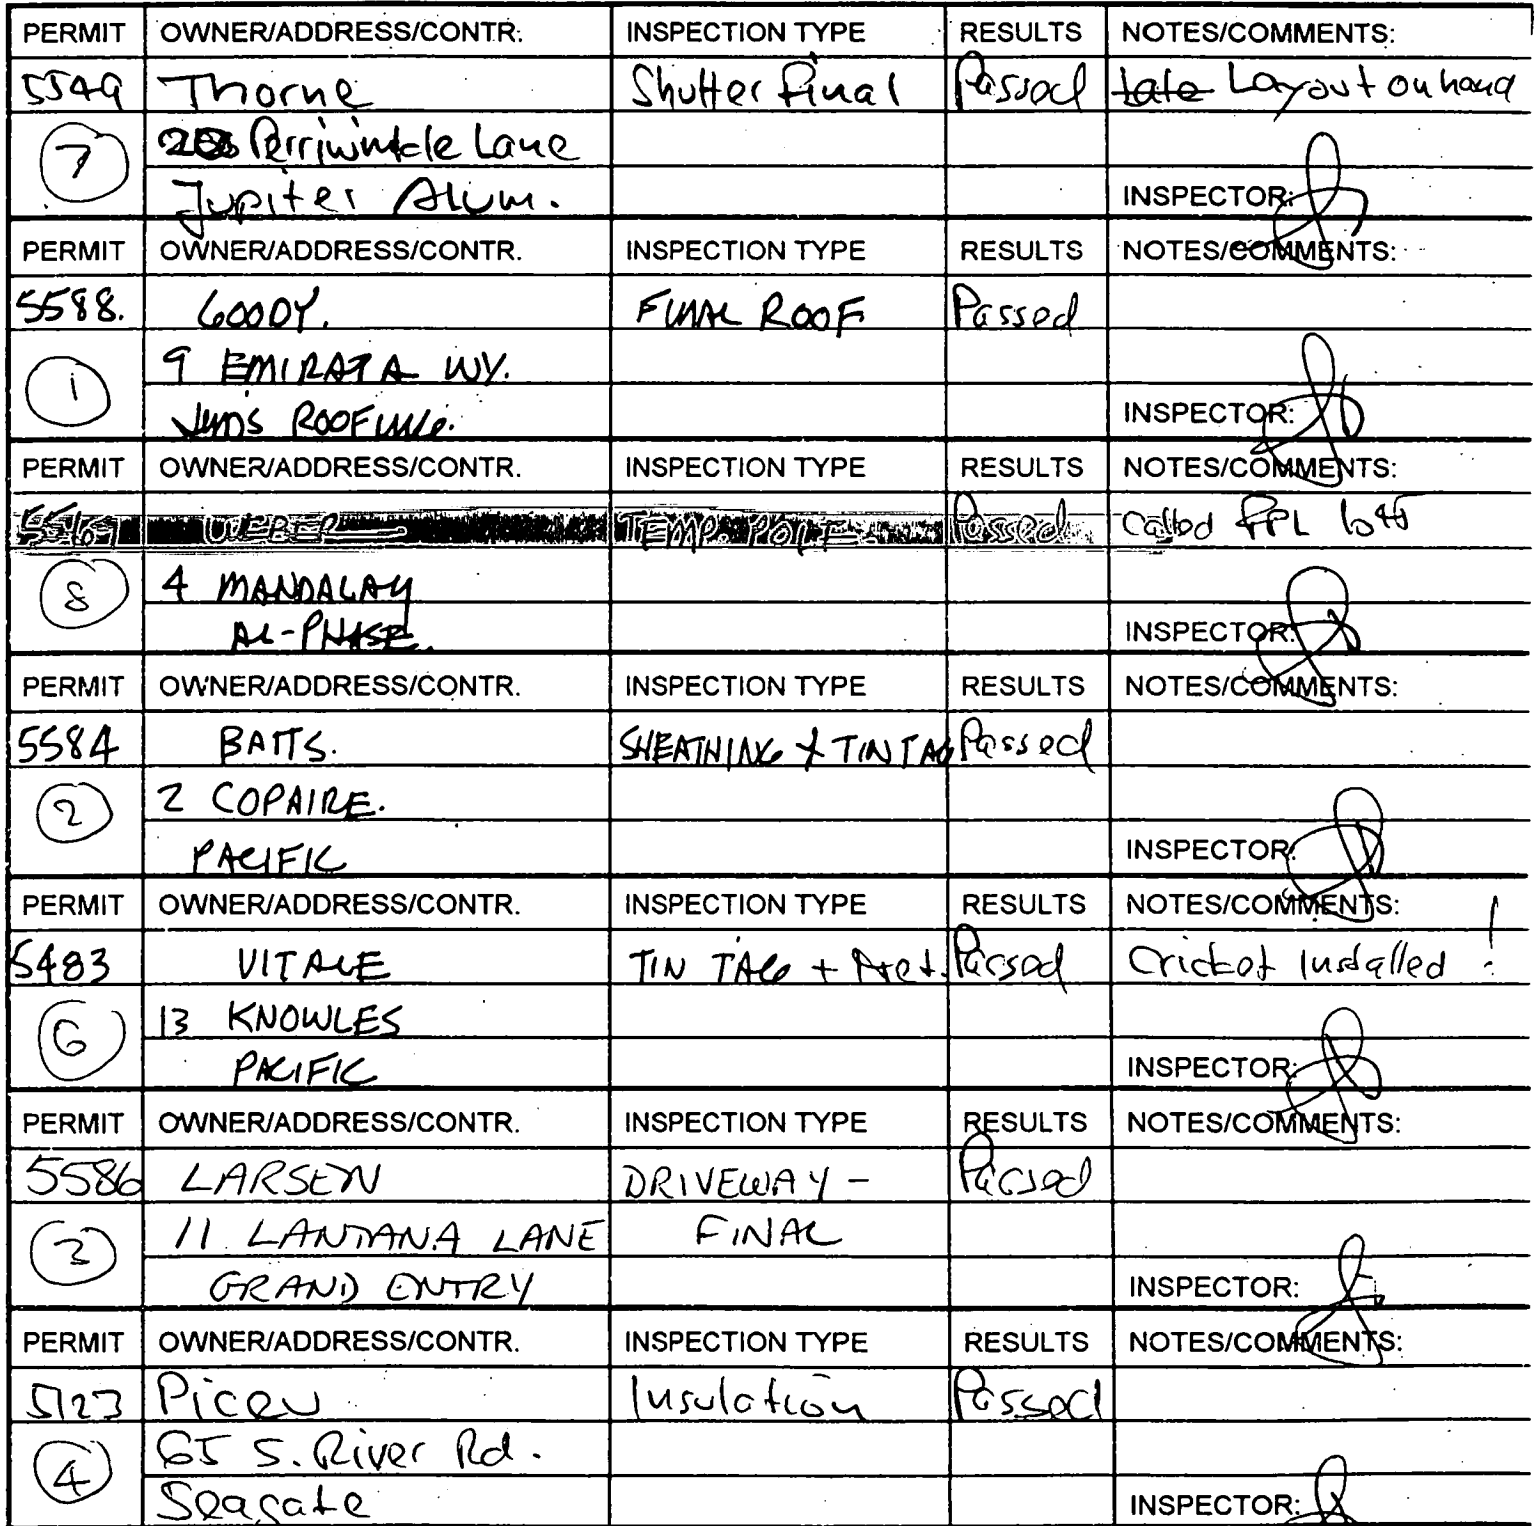 PERMIT OWNER/ADDRESS/CONTR. INSPECTION TYPE RESULTS NOTES/COMMENTS:
5549 Thorne Shutter Final Passed Layout on hand
7 Perriwinkle Lane
Jupiter Alum. INSPECTOR:
PERMIT OWNER/ADDRESS/CONTR. INSPECTION TYPE RESULTS NOTES/COMMENTS:
5588. GOODY. FINAL ROOF Passed
1 9 EMIRATA WY.
ROOFING. INSPECTOR:
PERMIT OWNER/ADDRESS/CONTR. INSPECTION TYPE RESULTS NOTES/COMMENTS:
WEBER TEMP. POLE Passed Called FPL
8 4 MANDALAY
AL-PHASE. INSPECTOR:
PERMIT OWNER/ADDRESS/CONTR. INSPECTION TYPE RESULTS NOTES/COMMENTS:
5584 BATTS. SHEATHING + TIN TAG Passed
2 2 COPAIRE.
PACIFIC INSPECTOR:
PERMIT OWNER/ADDRESS/CONTR. INSPECTION TYPE RESULTS NOTES/COMMENTS:
5483 VITALE TIN TAG + Passed Cricket Installed !
6 13 KNOWLES
PACIFIC INSPECTOR:
PERMIT OWNER/ADDRESS/CONTR. INSPECTION TYPE RESULTS NOTES/COMMENTS:
5586 LARSEN DRIVEWAY - Passed
3 11 LANTANA LANE FINAL
GRAND ENTRY INSPECTOR:
PERMIT OWNER/ADDRESS/CONTR. INSPECTION TYPE RESULTS NOTES/COMMENTS:
5123 Piceu Insulation Passed
4 65 S. River Rd.
Seagate INSPECTOR: